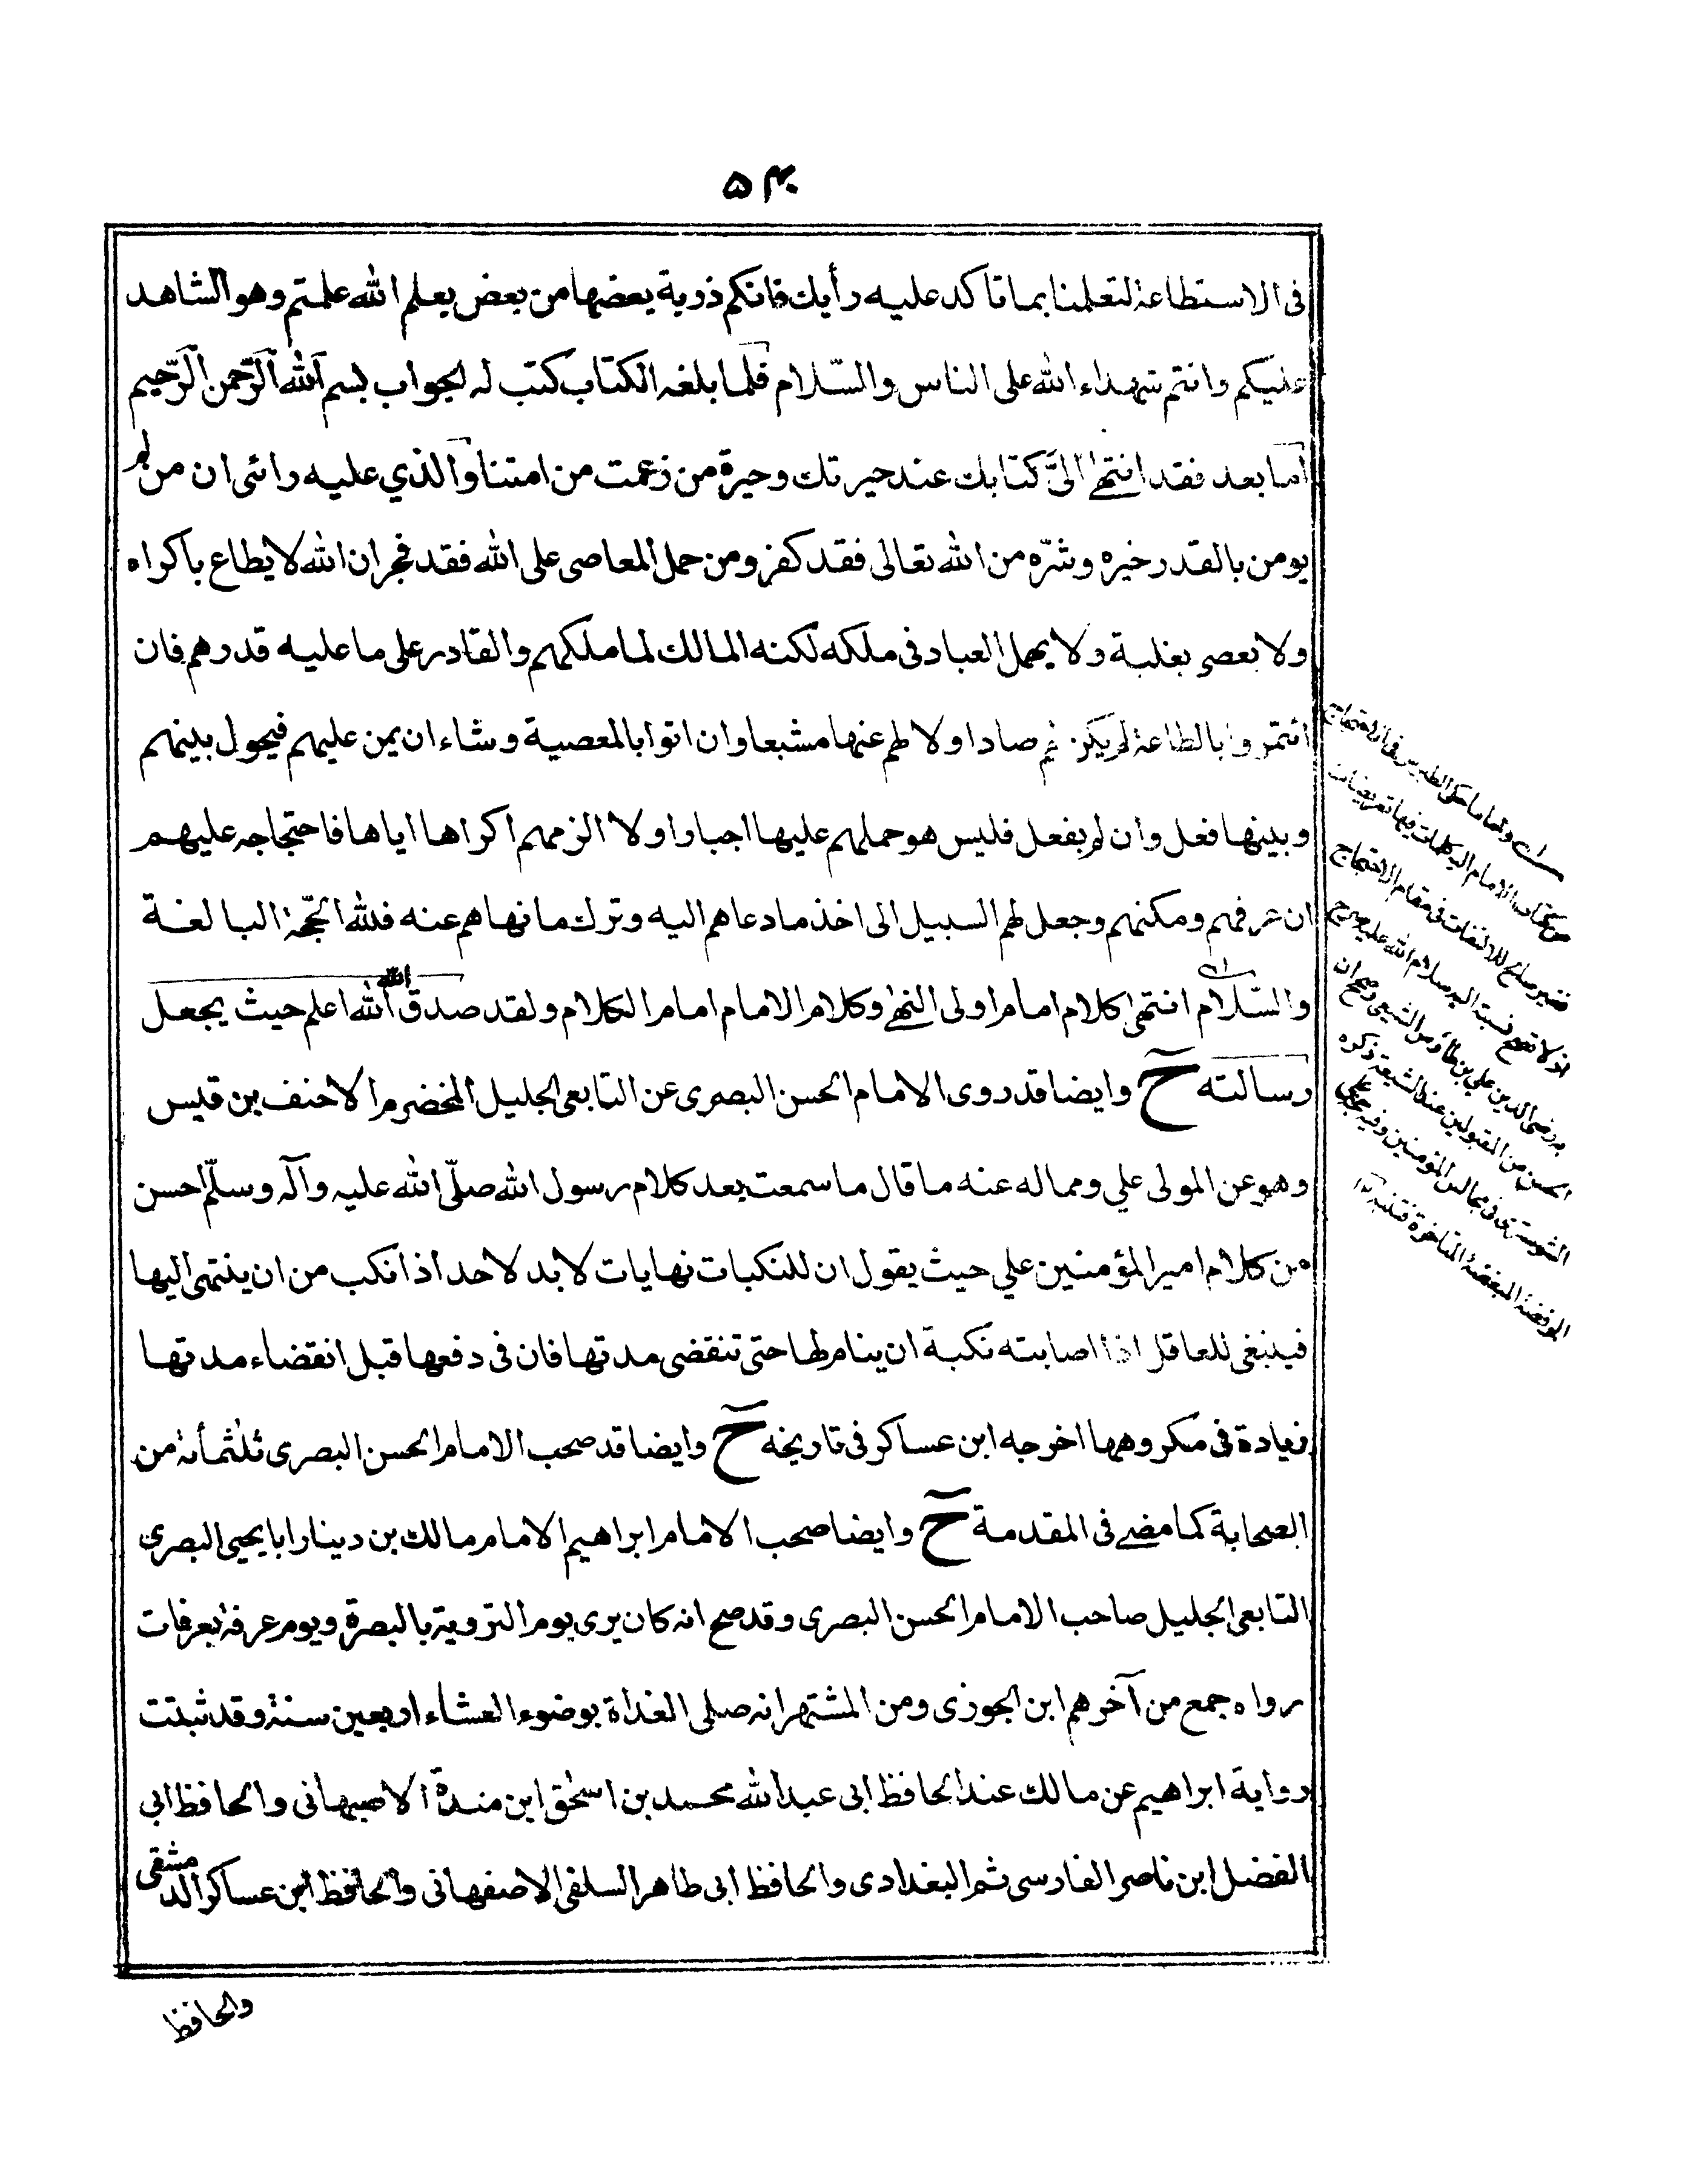 في الاستطاعة لتعلمنا بما تاكد عليه رأيك فانكم ذرية بعضها من بعض بعلم الله علمتم وهو الشاهد
عليكم وانتم شهداء الله على الناس والسّلام فلما بلغه الكتاب كتب له الجواب بسم الله الرّحمن الرّحيم
اما بعد فقد انتهى الىّ كتابك عند حيرتك وحيرة من زعمت من امتنا والذي عليه رائى ان من لم
يومن بالقدر خيره وشرّه من الله تعالى فقد كفر ومن حمل المعاصى على الله فقد فجر ان الله لا يطاع باكراه
ولا يعصى بغلبة ولا يهمل العباد فى ملكه لكنه المالك لما ملكهم والقادر على ما عليه قدرهم فان
ائتمروا بالطاعة لم يكن لهم صادا ولا لهم عنها مشبعا وان اتوا بالمعصية وشاء ان يمن عليهم فيحول بينهم
وبينها فعل وان لم يفعل فليس هو حملهم عليها اجبارا ولا الزمهم اكراها اياها فاحتجاجه عليهم
ان عرفهم ومكنهم وجعل لهم السبيل الى اخذ ما دعاهم اليه وترك ما نهاهم عنه فلله الحجّة البالغة
والسّلام انتهى كلام امام اولى النهى وكلام الامام امام الكلام ولقد صدق الله الله اعلم حيث يجعل
رسالته ح وايضا قد روى الامام الحسن البصرى عن التابعى الجليل المخضرم الاحنف بن قيس
وهو عن المولى علي ومما له عنه ما قال ما سمعت بعد كلام رسول الله صلّى الله عليه وآله وسلّم احسن
من كلام امير المؤمنين علي حيث يقول ان للنكبات نهايات لا بد لاحد اذا نكب من ان ينتهى اليها
فينبغى للعاقل اذا اصابته نكبة ان ينام لها حتى تنقضى مدتها فان فى دفعها قبل انقضاء مدتها
زيادة فى مكروهها اخرجه ابن عساكر فى تاريخه ح وايضا قد صحب الامام الحسن البصرى ثلثمأة من
الصحابة كما مضى فى المقدمة ح وايضا صحب الامام ابراهيم الامام مالك بن دينار ابا يحيى البصرى
التابعى الجليل صاحب الامام الحسن البصرى وقد صح انه كان يرى يوم التروية بالبصرة ويوم عرفة بعرفات
رواه جمع من آخرهم ابن الجوزى ومن المشتهر انه صلى الغداة بوضوء العشاء اربعين سنة وقد ثبتت
رواية ابراهيم عن مالك عند الحافظ ابى عبد الله محمد بن اسحٰق ابن مندة الاصبهانى والحافظ ابى
الفضل ابن ناصر الفارسى ثم البغدادى والحافظ ابى طاهر السلفى الاصفهانى والحافظ ابن عساكر الدمشقى
والحافظ
الامام اليه كلمات فيها تعريضات
صالح للالتفات فى مقام الاحتجاج
نسبة اليه سلام الله عليه
رضى الدين علي بن طاؤس الشيعى
الحسن من المقبولين عند الشيعة ذكره
الشوسترى فى مجالس المؤمنين وفيه
المبغضة المتاخرة فتنبه